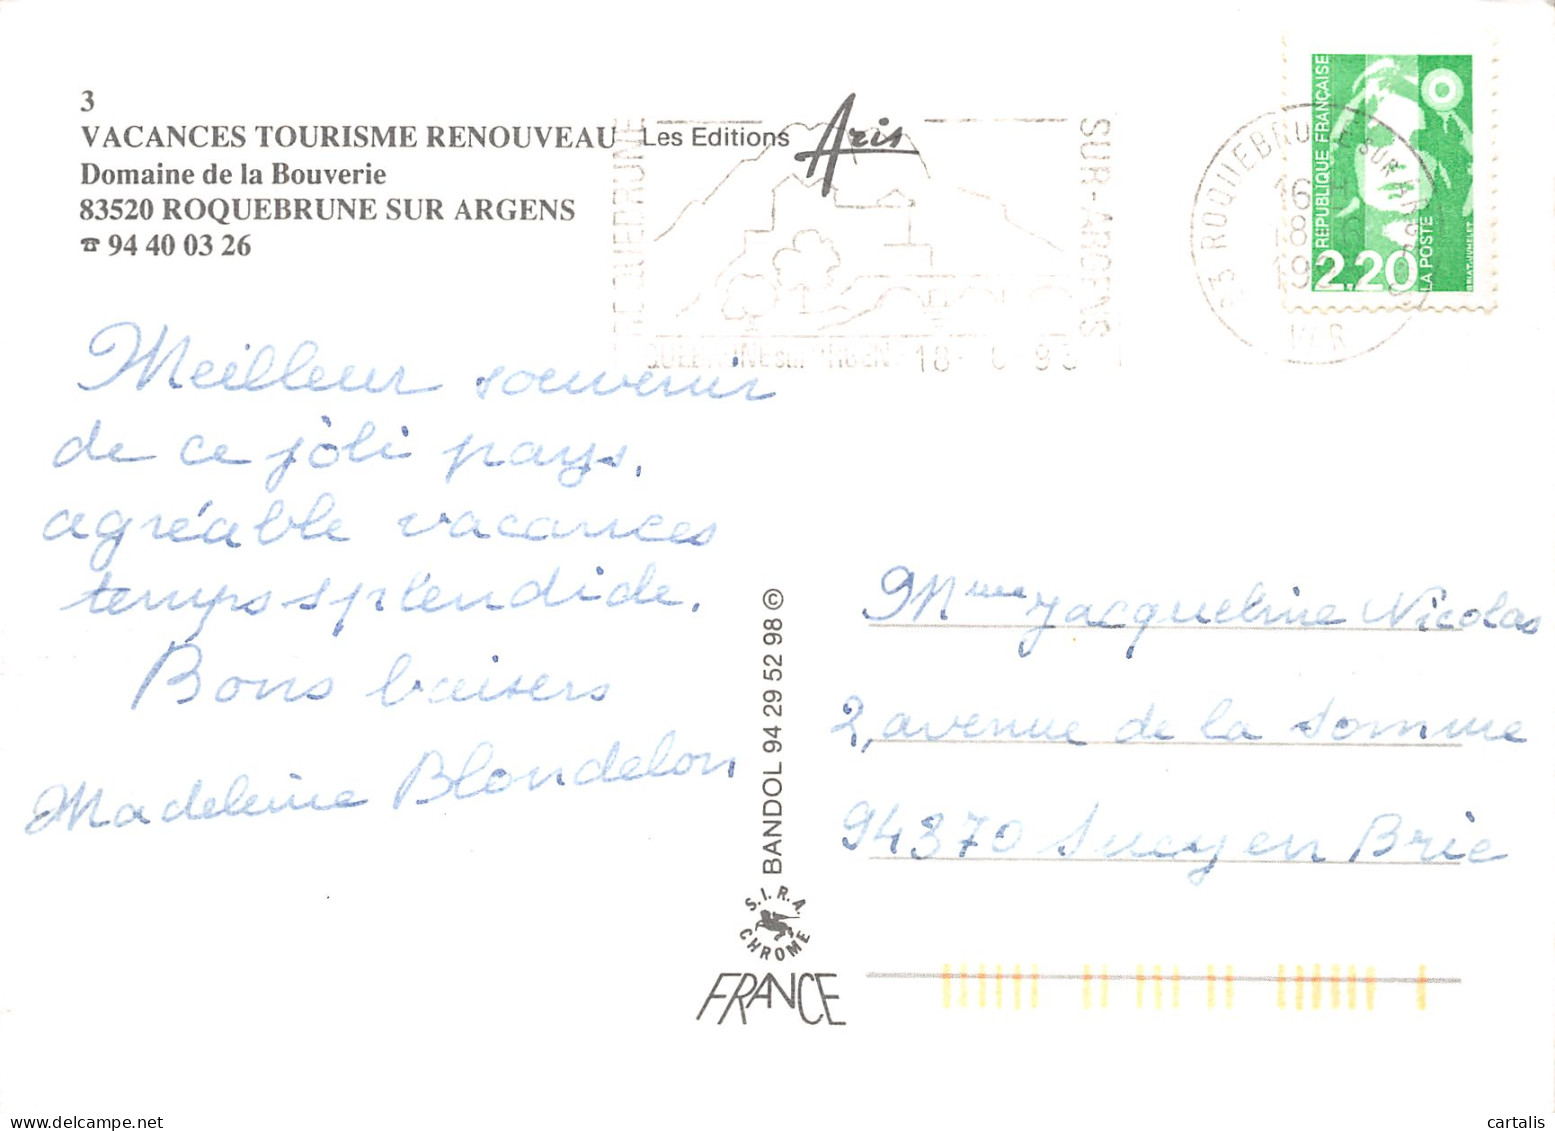 3
VACANCES TOURISME RENOUVEAU
Domaine de la Bouverie
83520 ROQUEBRUNE SUR ARGENS
☎ 94 40 03 26
Les Editions Aris
SUR-ARGENS
18 93
83 ROQUEBRUNE SUR ARGENS
16
18
VAR
RÉPUBLIQUE FRANÇAISE
2,20
LA POSTE
BRIAT-JUMELET
Meilleur souvenir
de ce joli pays,
agréable vacances
temps splendide.
Bons baisers
Madeleine Blondelon
BANDOL 94 29 52 98 ©
S.I.R.A.
CHROME
FRANCE
Mme Jacqueline Nicolas
2, avenue de la Somme
94370 Sucy en Brie
cartalis